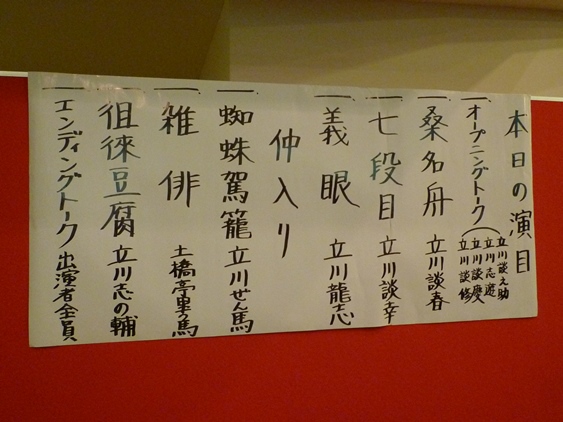 本日の演目
一 オープニングトーク( 立川談之助 立川志遊 立川談慶 立川談修
一 桑名舟 立川談春
一 七段目 立川談幸
一 義眼 立川龍志
仲入り
一 蜘蛛駕籠 立川せん馬
一 雑俳 土橋亭里う馬
一 徂徠豆腐 立川志の輔
一 エンディングトーク 出演者全員